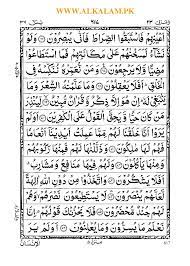 WWW.ALKALAM.PK
اَعْیُنِهِمْ فَاسْتَبَقُوا الصِّرَاطَ فَاَنّٰی یُبْصِرُوْنَ وَلَوْ
نَشَآءُ لَمَسَخْنٰهُمْ عَلٰی مَكَانَتِهِمْ فَمَا اسْتَطَاعُوْا
مُضِیًّا وَّلَا یَرْجِعُوْنَ وَمَنْ نُّعَمِّرْهُ نُنَكِّسْهُ فِی
الْخَلْقِ اَفَلَا یَعْقِلُوْنَ وَمَا عَلَّمْنٰهُ الشِّعْرَ وَمَا یَنْۢبَغِیْ
لَهٗ اِنْ هُوَ اِلَّا ذِكْرٌ وَّقُرْاٰنٌ مُّبِیْنٌ لِّیُنْذِرَ
مَنْ كَانَ حَیًّا وَّیَحِقَّ الْقَوْلُ عَلَی الْكٰفِرِیْنَ اَوَلَمْ
یَرَوْا اَنَّا خَلَقْنَا لَهُمْ مِّمَّا عَمِلَتْ اَیْدِیْنَاۤ اَنْعَامًا فَهُمْ
لَهَا مٰلِكُوْنَ وَذَلَّلْنٰهَا لَهُمْ فَمِنْهَا رَكُوْبُهُمْ وَمِنْهَا
یَاْكُلُوْنَ وَلَهُمْ فِیْهَا مَنَافِعُ وَمَشَارِبُ
اَفَلَا یَشْكُرُوْنَ وَاتَّخَذُوْا مِنْ دُوْنِ اللّٰهِ اٰلِهَةً
لَّعَلَّهُمْ یُنْصَرُوْنَ لَا یَسْتَطِیْعُوْنَ نَصْرَهُمْ وَهُمْ
لَهُمْ جُنْدٌ مُّحْضَرُوْنَ فَلَا یَحْزُنْكَ قَوْلُهُمْ اِنَّا
نَعْلَمُ مَا یُسِرُّوْنَ وَمَا یُعْلِنُوْنَ اَوَلَمْ یَرَ
الْاِنْسَانُ